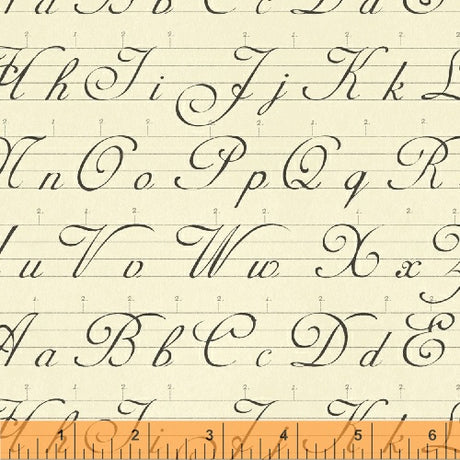 B b C c D d E
H h I i J j K k L
N n O o P p Q q R
u V v W w X x
A a B b C c D d E
H h I i J j K k L
1 2 3 4 5 6